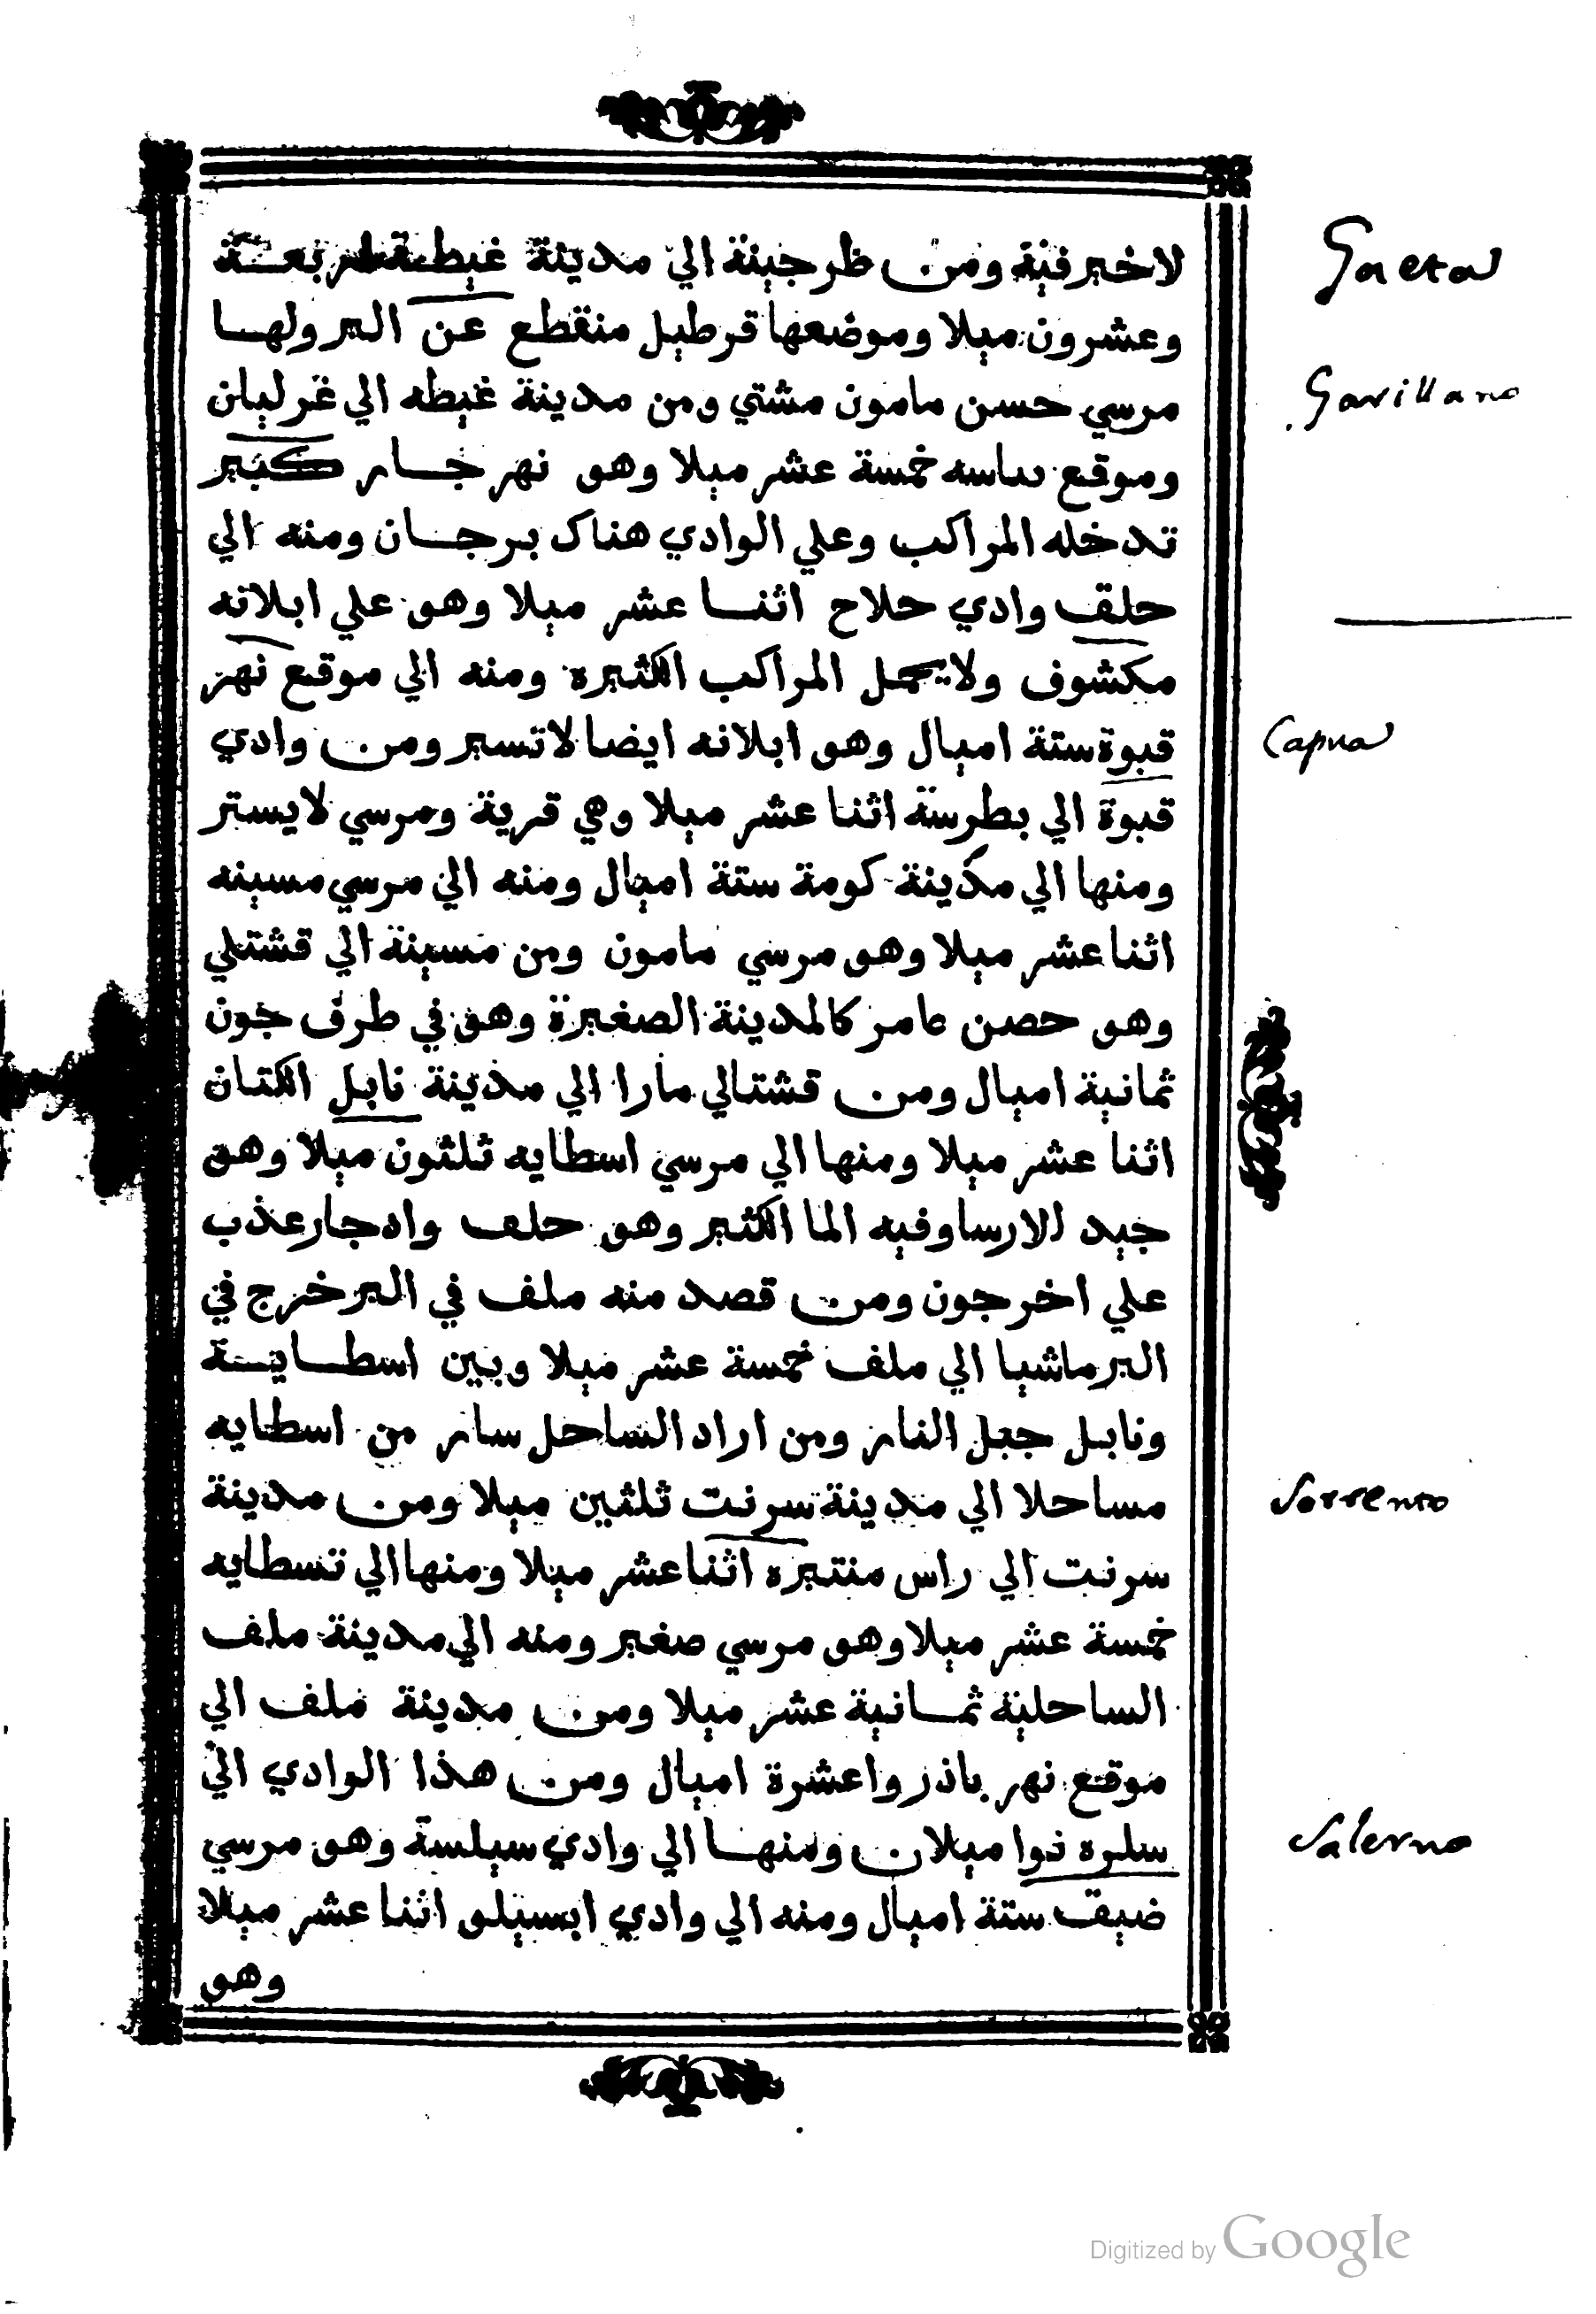 لاخير فيه ومن طرجينة الي مدينة غيطة اربعة
وعشرون ميلا وموضعها قرطيل منقطع عن البر ولها
مرسي حسن مامون مشتي ومن مدينة غيطه الي غرليان
وموقع ساسه خمسة عشر ميلا وهو نهر جار كبير
تدخله المراكب وعلي الوادي هناك برجان ومنه الي
حلق وادي حلاح اثنا عشر ميلا وهو علي ابلانه
مكشوف ولا يحمل المراكب الكثيره ومنه الي موقع نهر
قبوة ستة اميال وهو ابلانه ايضا لا تستير ومن وادي
قبوة الي بطرسة اثنا عشر ميلا وهي قرية ومرسي لايستر
ومنها الي مدينة كومة ستة اميال ومنه الي مرسي مسينه
اثنا عشر ميلا وهو مرسي مامون ومن مسينة الي قشتلي
وهو حصن عامر كالمدينة الصغيرة وهو في طرف جون
ثمانية اميال ومن قشتالي مارا الي مدينة نابل الكتان
اثنا عشر ميلا ومنها الي مرسي اسطايه ثلثون ميلا وهو
جيد الارسا وفيه الما الكثير وهو حلف واد جار عذب
علي اخر جون ومن قصد منه ملف في البر خرج في
البر ماشيا الي ملف خمسة عشر ميلا وبين اسطاية
ونابل جبل النار ومن اراد الساحل سار من اسطايه
مساحلا الي مدينة سرنت ثلثين ميلا ومن مدينة
سرنت الي راس منتيره اثنا عشر ميلا ومنها الي تسطايه
خمسة عشر ميلا وهو مرسي صغير ومنه الي مدينة ملف
الساحلية ثمانية عشر ميلا ومن مدينة ملف الي
موقع نهر باذروا عشرة اميال ومن هذا الوادي الي
سلره نوا ميلان ومنها الي وادي سيلسة وهو مرسي
ضيق ستة اميال ومنه الي وادي ابسيلو اثنا عشر ميلا
وهو
Gaeta
Garillano
Capua
Sorrento
Salerno
Digitized by Google